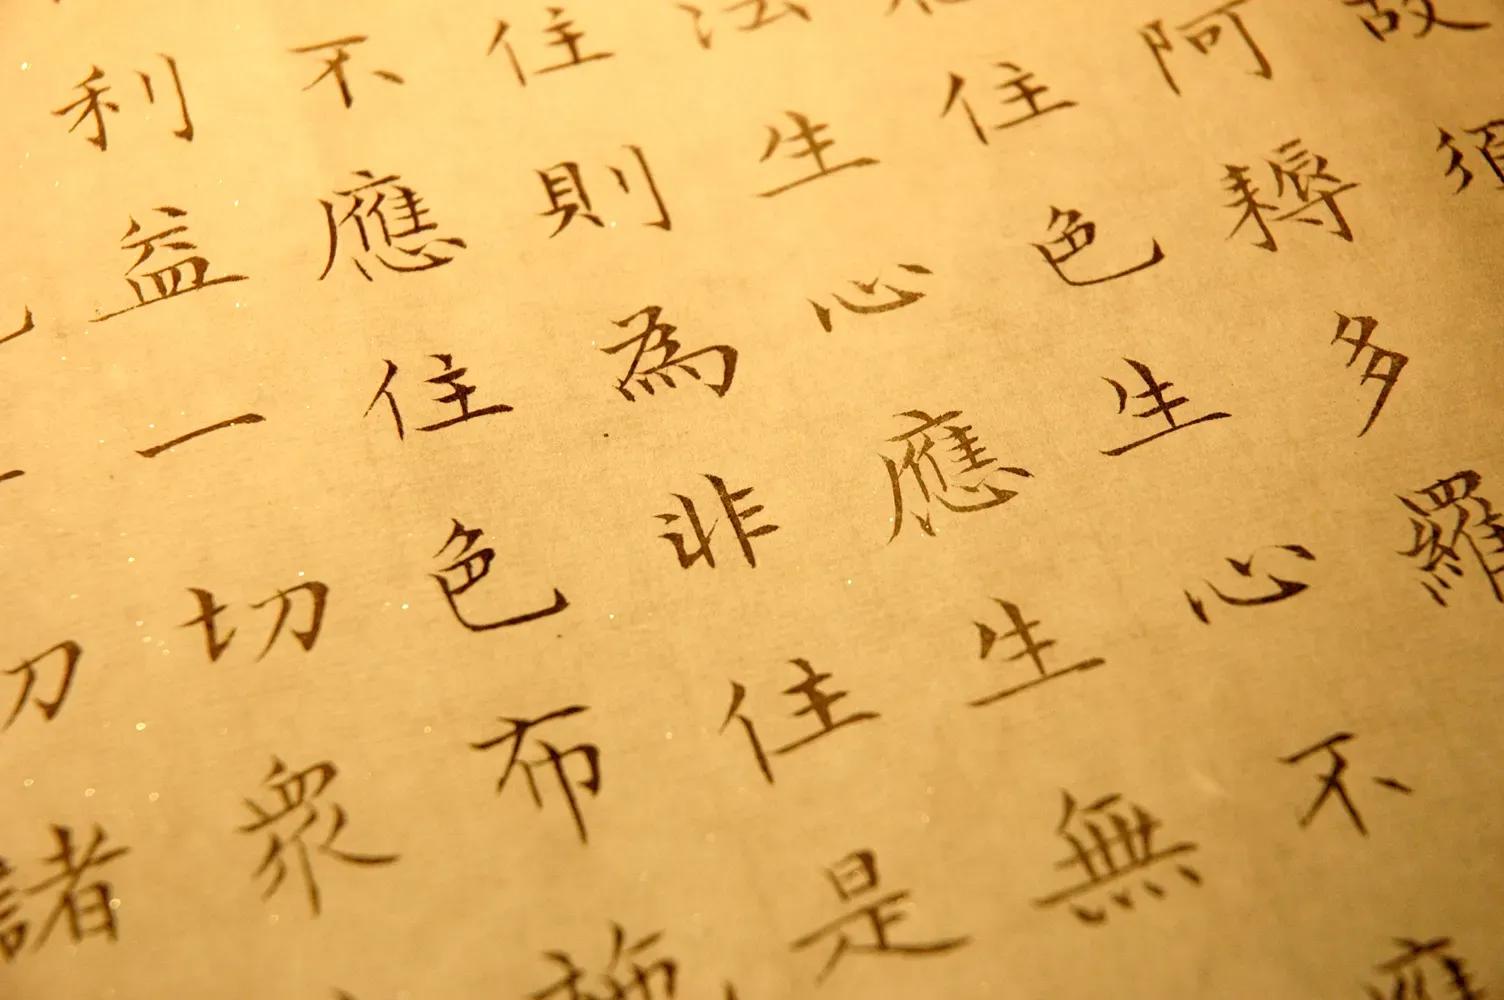 故須
阿耨多羅
住色生心不應
法生心應生無
住則為非住是
不應住色布施
利益一切眾
諸